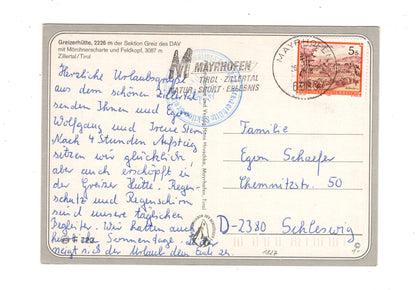 Greizerhütte, 2226 m der Sektion Greiz des DAV
mit Mörchnerscharte und Feldkopf, 3087 m
Zillertal/Tirol
MAYRHOFEN
TIROL · ZILLERTAL
NATUR · SPORT · ERLEBNIS
MAYRHOFEN
5 S
Herzliche Urlaubsgrüße
aus dem schönen Zillertal
senden Ihnen und Egon
Wolfgang und Irene Stem
Nach 4 Stunden Aufstieg
setzen wir glücklich,
aber auch erschöpft in
der Greizer Hütte. Regen-
schutz und Regenschirm
sind unsere täglichen
Begleiter. Wir hatten auch
Sonnentage,
neigt sich der Urlaub dem Ende zu.
Familie
Egon Schaefer
Chemnitzstr. 50
D-2380 Schleswig